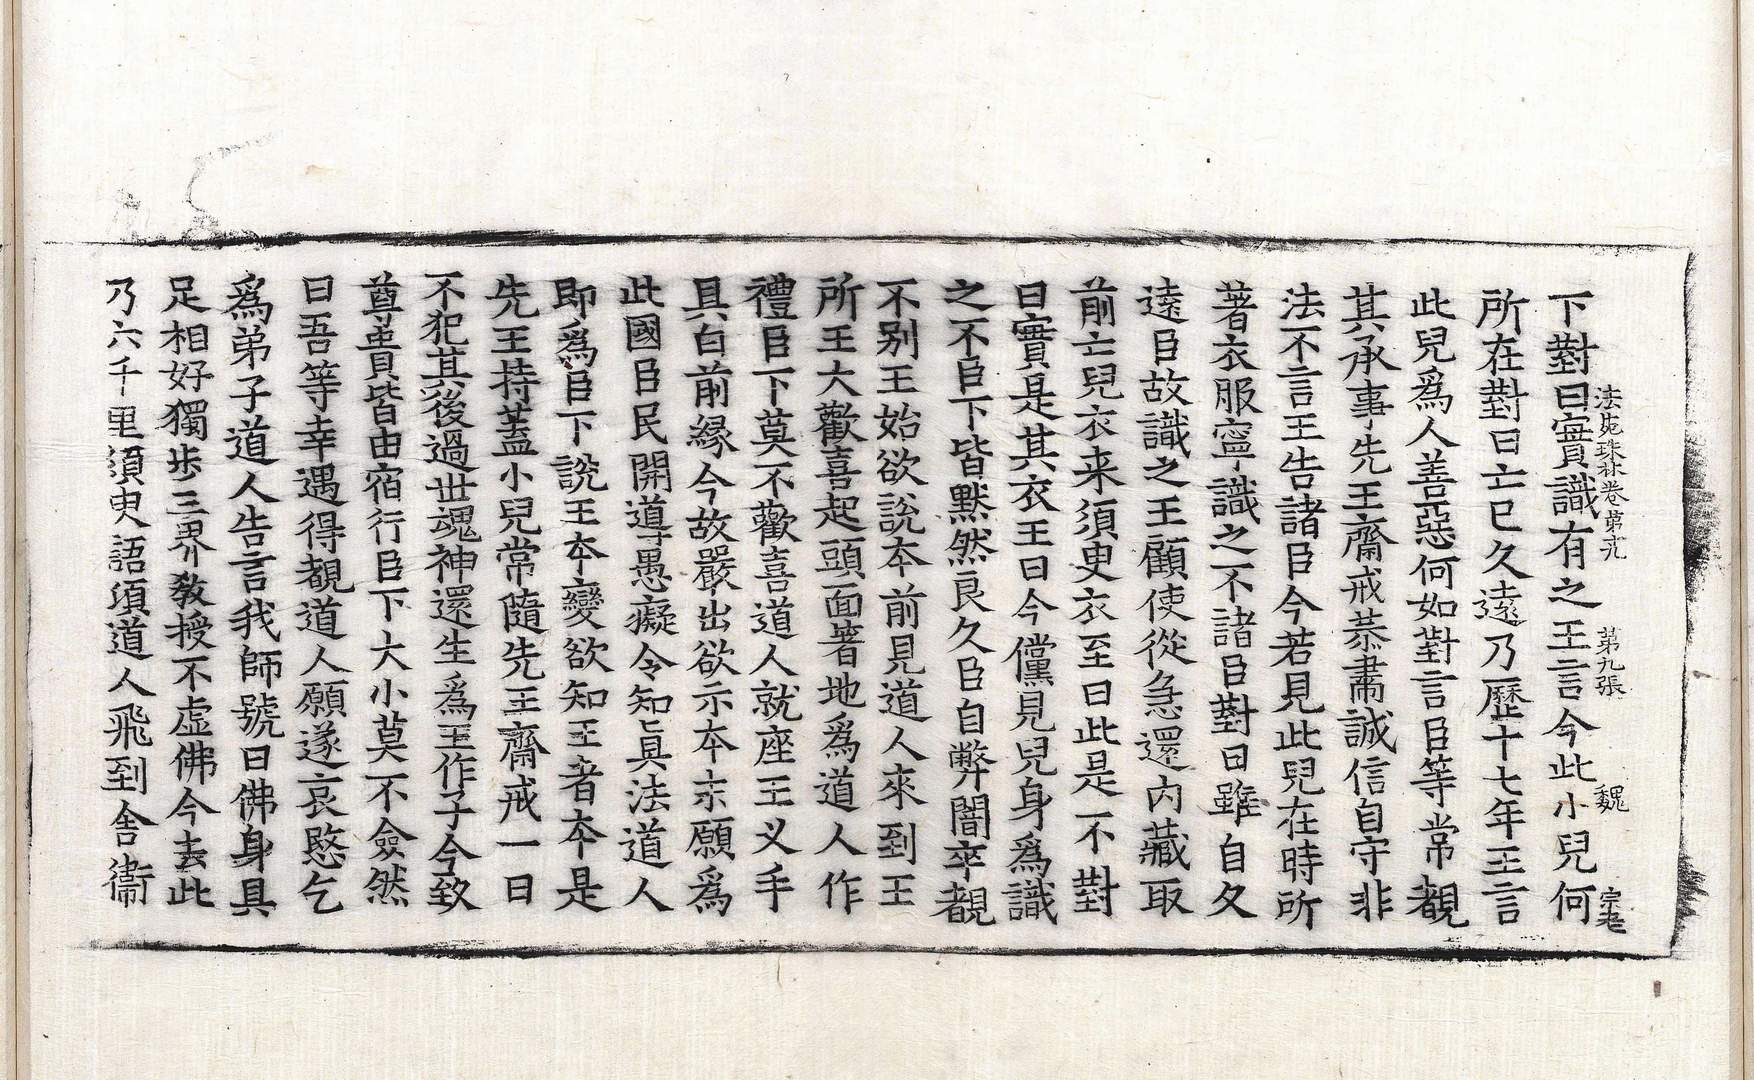 法苑珠林卷第六 第九張 魏 宗老
下對曰實識有之王言今此小兒何
所在對曰亡已久遠乃歷十七年王言
此兒爲人善惡何如對言臣等常覩
其承事先王齋戒恭肅誠信自守非
法不言王告諸臣今若見此兒在時所
著衣服寧識之不諸臣對曰雖自久
遠臣故識之王顧使從急還內藏取
前亡兒衣来須臾衣至曰此是不對
曰實是其衣王曰今儻見兒身爲識
之不臣下皆默然良久臣自弊闇卒覩
不别王始欲說本前見道人來到王
所王大歡喜起頭面著地爲道人作
禮臣下莫不歡喜道人就座王叉手
具白前緣今故嚴出欲示本末願爲
此國臣民開導愚癡令知真法道人
即爲臣下說王本變欲知王者本是
先王持蓋小兒常隨先王齋戒一日
不犯其後過世魂神還生爲王作子今致
尊貴皆由宿行臣下大小莫不僉然
曰吾等幸遇得覩道人願遂哀愍乞
爲弟子道人告言我師號曰佛身具
足相好獨步三界敎授不虛佛今去此
乃六千里須臾語須道人飛到舍衞